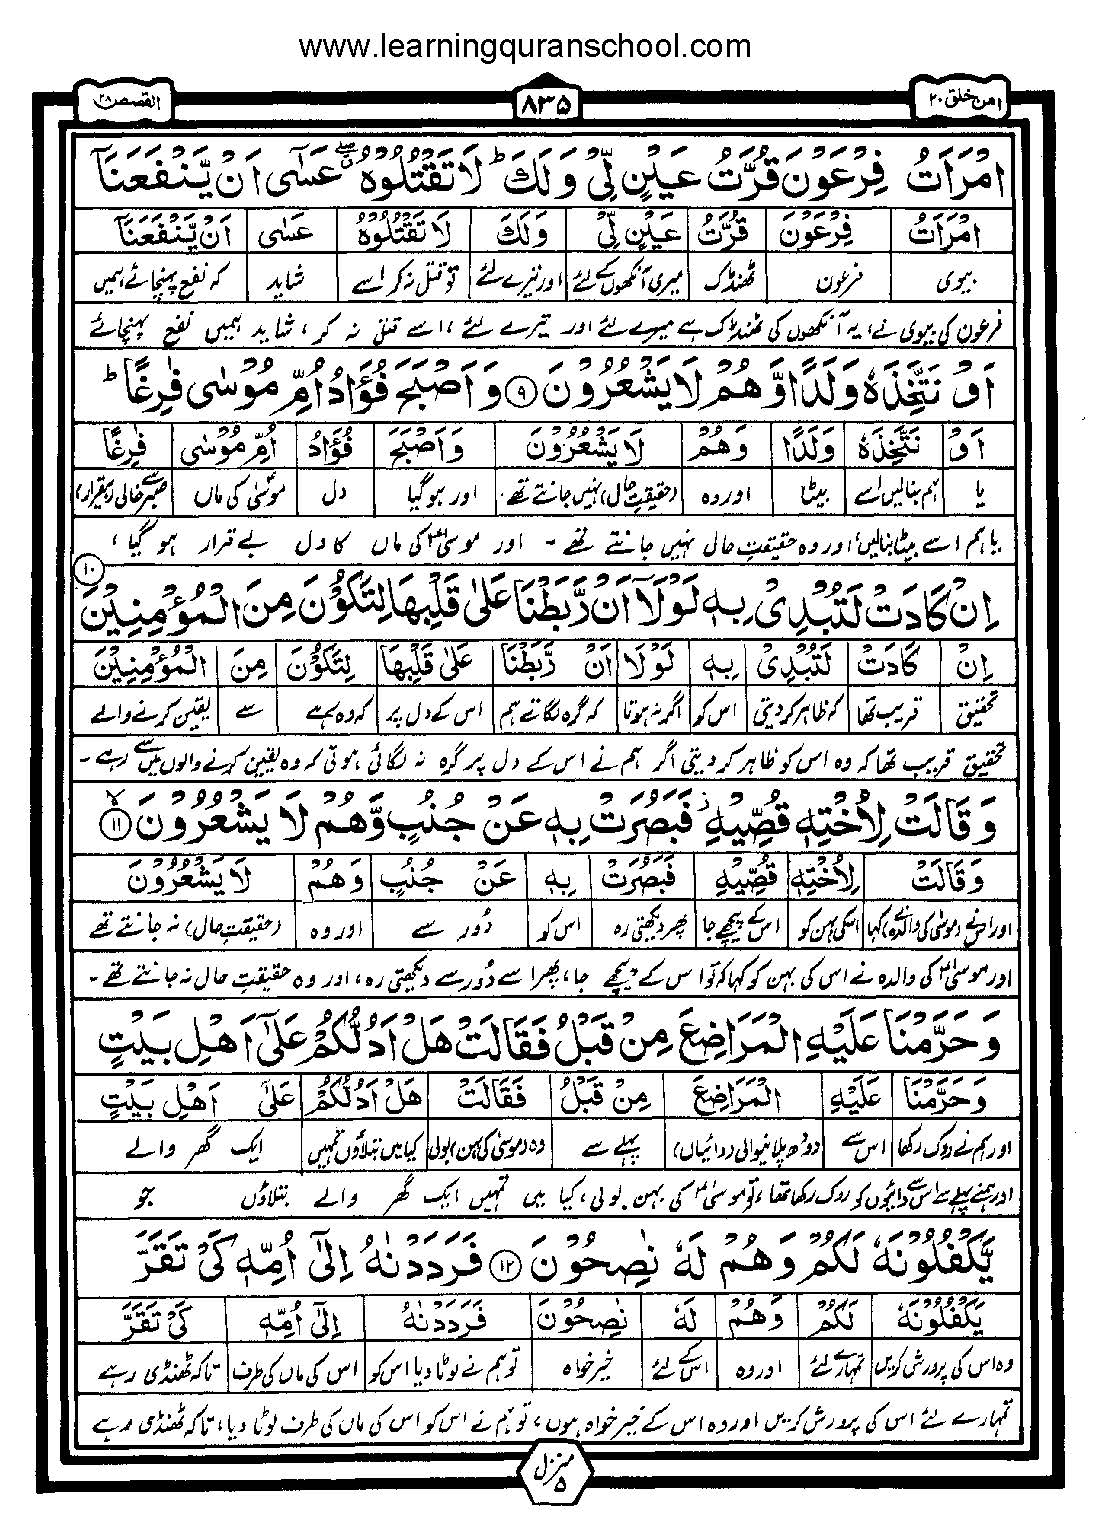 www.learningquranschool.com
امن خلق ۲۰
۸۳۵
القصص ۲۸
امْرَاَتُ فِرْعَوْنَ قُرَّتُ عَيْنٍ لِّيْ وَلَكَ ؕ لَا تَقْتُلُوْهُ ۖ عَسٰۤى اَنْ يَّنْفَعَنَاۤ
امْرَاَتُ فِرْعَوْنَ قُرَّتُ عَيْنٍ لِّيْ وَلَكَ لَا تَقْتُلُوْهُ عَسٰۤى اَنْ يَّنْفَعَنَاۤ
بیوی فرعون ٹھنڈک میری آنکھوں کے لئے اور تیرے لئے تو قتل نہ کر اسے شاید کہ نفع پہنچائے ہمیں
فرعون کی بیوی نے، یہ آنکھوں کی ٹھنڈک ہے میرے لئے اور تیرے لئے، اسے قتل نہ کر، شاید ہمیں نفع پہنچائے
اَوْ نَتَّخِذَهٗ وَلَدًا وَّهُمْ لَا يَشْعُرُوْنَ ۹ وَاَصْبَحَ فُؤَادُ اُمِّ مُوْسٰى فٰرِغًا ؕ
اَوْ نَتَّخِذَهٗ وَلَدًا وَّهُمْ لَا يَشْعُرُوْنَ وَاَصْبَحَ فُؤَادُ اُمِّ مُوْسٰى فٰرِغًا
یا ہم بنالیں اسے بیٹا اور وہ (حقیقتِ حال) نہیں جانتے تھے اور ہو گیا دل موسٰیؑ کی ماں صبر سے خالی (بیقرار)
یا ہم اسے بیٹا بنالیں، اور وہ حقیقتِ حال نہیں جانتے تھے ۔ اور موسٰیؑ کی ماں کا دل بے قرار ہو گیا،
اِنْ كَادَتْ لَتُبْدِيْ بِهٖ لَوْلَاۤ اَنْ رَّبَطْنَا عَلٰى قَلْبِهَا لِتَكُوْنَ مِنَ الْمُؤْمِنِيْنَ ۱۰
اِنْ كَادَتْ لَتُبْدِيْ بِهٖ لَوْلَاۤ اَنْ رَّبَطْنَا عَلٰى قَلْبِهَا لِتَكُوْنَ مِنَ الْمُؤْمِنِيْنَ
تحقیق قریب تھا کہ ظاہر کر دیتی اس کو اگر نہ ہوتا کہ گرہ لگاتے ہم اس کے دل پر کہ وہ رہے سے یقین کرنے والے
تحقیق قریب تھا کہ وہ اس کو ظاہر کر دیتی اگر ہم نے اس کے دل پر گرہ نہ لگائی ہوتی کہ وہ یقین کرنے والوں میں سے رہے ۔
وَقَالَتْ لِاُخْتِهٖ قُصِّيْهِ ز فَبَصُرَتْ بِهٖ عَنْ جُنُبٍ وَّهُمْ لَا يَشْعُرُوْنَ ۱۱
وَقَالَتْ لِاُخْتِهٖ قُصِّيْهِ فَبَصُرَتْ بِهٖ عَنْ جُنُبٍ وَّهُمْ لَا يَشْعُرُوْنَ
اور اس نے (موسٰی کی والدہ نے) کہا اسکی بہن کو اس کے پیچھے جا پھر دیکھتی رہ اس کو دُور سے اور وہ (حقیقتِ حال) نہ جانتے تھے
اور موسٰیؑ کی والدہ نے اس کی بہن کو کہا کہ تو اس کے پیچھے جا، پھر اسے دُور سے دیکھتی رہ، اور وہ حقیقتِ حال نہ جانتے تھے ۔
وَحَرَّمْنَا عَلَيْهِ الْمَرَاضِعَ مِنْ قَبْلُ فَقَالَتْ هَلْ اَدُلُّكُمْ عَلٰۤى اَهْلِ بَيْتٍ
وَحَرَّمْنَا عَلَيْهِ الْمَرَاضِعَ مِنْ قَبْلُ فَقَالَتْ هَلْ اَدُلُّكُمْ عَلٰۤى اَهْلِ بَيْتٍ
اور ہم نے روک رکھا اس سے دودھ پلانیوالی (دوائیاں) پہلے سے وہ (موسٰی کی بہن) بولی کیا میں بتلاؤں تمہیں ایک گھر والے
اور ہم نے پہلے ہی اس سے دائیوں کو روک رکھا تھا، تو موسٰیؑ کی بہن بولی، کیا میں تمہیں ایک گھر والے بتلاؤں جو
يَّكْفُلُوْنَهٗ لَكُمْ وَهُمْ لَهٗ نٰصِحُوْنَ ۱۲ فَرَدَدْنٰهُ اِلٰۤى اُمِّهٖ كَيْ تَقَرَّ
يَكْفُلُوْنَهٗ لَكُمْ وَهُمْ لَهٗ نٰصِحُوْنَ فَرَدَدْنٰهُ اِلٰۤى اُمِّهٖ كَيْ تَقَرَّ
وہ اس کی پرورش کریں تمہارے لئے اور وہ اس کے لئے خیر خواہ تو ہم نے لوٹا دیا اس کو اس کی ماں کی طرف تاکہ ٹھنڈی رہے
تمہارے لئے اس کی پرورش کریں اور وہ اس کے خیر خواہ ہوں، تو ہم نے اس کو اس کی ماں کی طرف لوٹا دیا، تاکہ ٹھنڈی رہے
منزل ۵